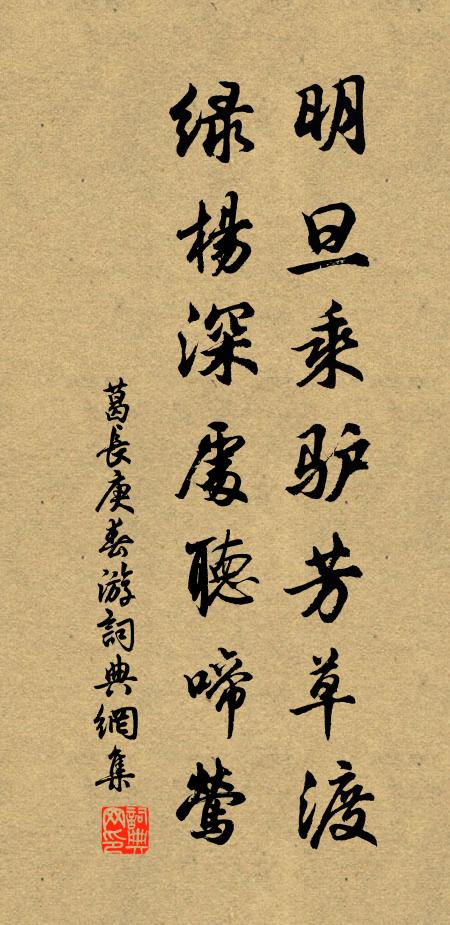 明旦乘驴芳草渡
绿楊深處聽啼鶯
葛長庚春游詞典網集
詞典網印